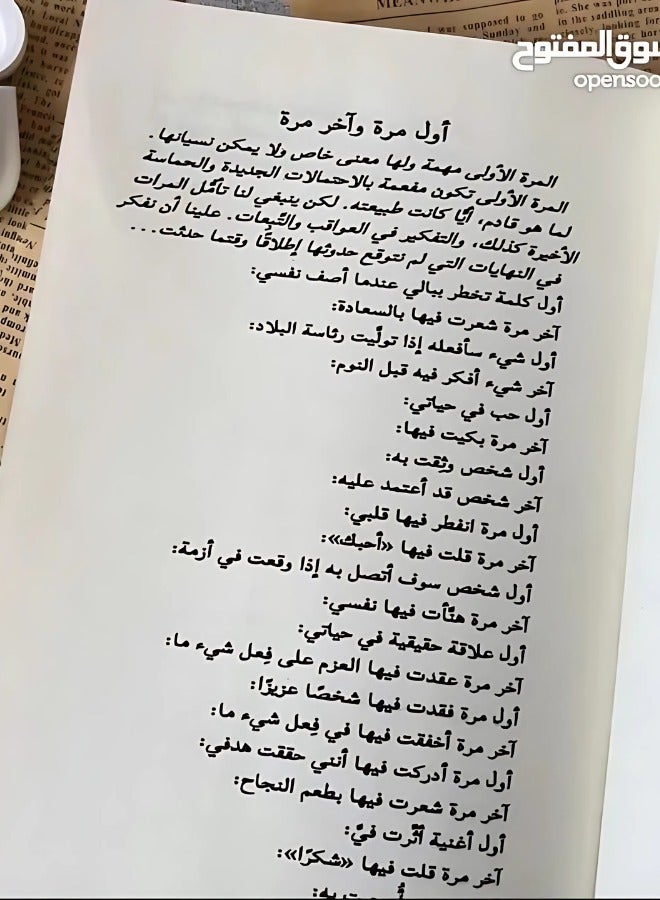 MEANW
السوق المفتوح
opensoo
أول مرة وآخر مرة
المرة الأولى مهمة ولها معنى خاص ولا يمكن نسيانها.
المرة الأولى تكون مفعمة بالاحتمالات الجديدة والحماسة
لما هو قادم، أيًا كانت طبيعته. لكن ينبغي لنا تأمُّل المرات
الأخيرة كذلك، والتفكير في العواقب والتَّبِعات. علينا أن نفكر
في النهايات التي لم نتوقع حدوثها إطلاقًا وقتما حدثت...
أول كلمة تخطر ببالي عندما أصف نفسي:
آخر مرة شعرت فيها بالسعادة:
أول شيء سأفعله إذا تولَّيت رئاسة البلاد:
آخر شيء أفكر فيه قبل النوم:
أول حب في حياتي:
آخر مرة بكيت فيها:
أول شخص وثقت به:
آخر شخص قد أعتمد عليه:
أول مرة انفطر فيها قلبي:
آخر مرة قلت فيها «أحبك»:
أول شخص سوف أتصل به إذا وقعت في أزمة:
آخر مرة هنَّأت فيها نفسي:
أول علاقة حقيقية في حياتي:
آخر مرة عقدت فيها العزم على فِعل شيء ما:
أول مرة فقدت فيها شخصًا عزيزًا:
آخر مرة أخفقت فيها في فِعل شيء ما:
أول مرة أدركت فيها أنني حققت هدفي:
آخر مرة شعرت فيها بطعم النجاح:
أول أغنية أثَّرت فيَّ:
آخر مرة قلت فيها «شكرًا»: